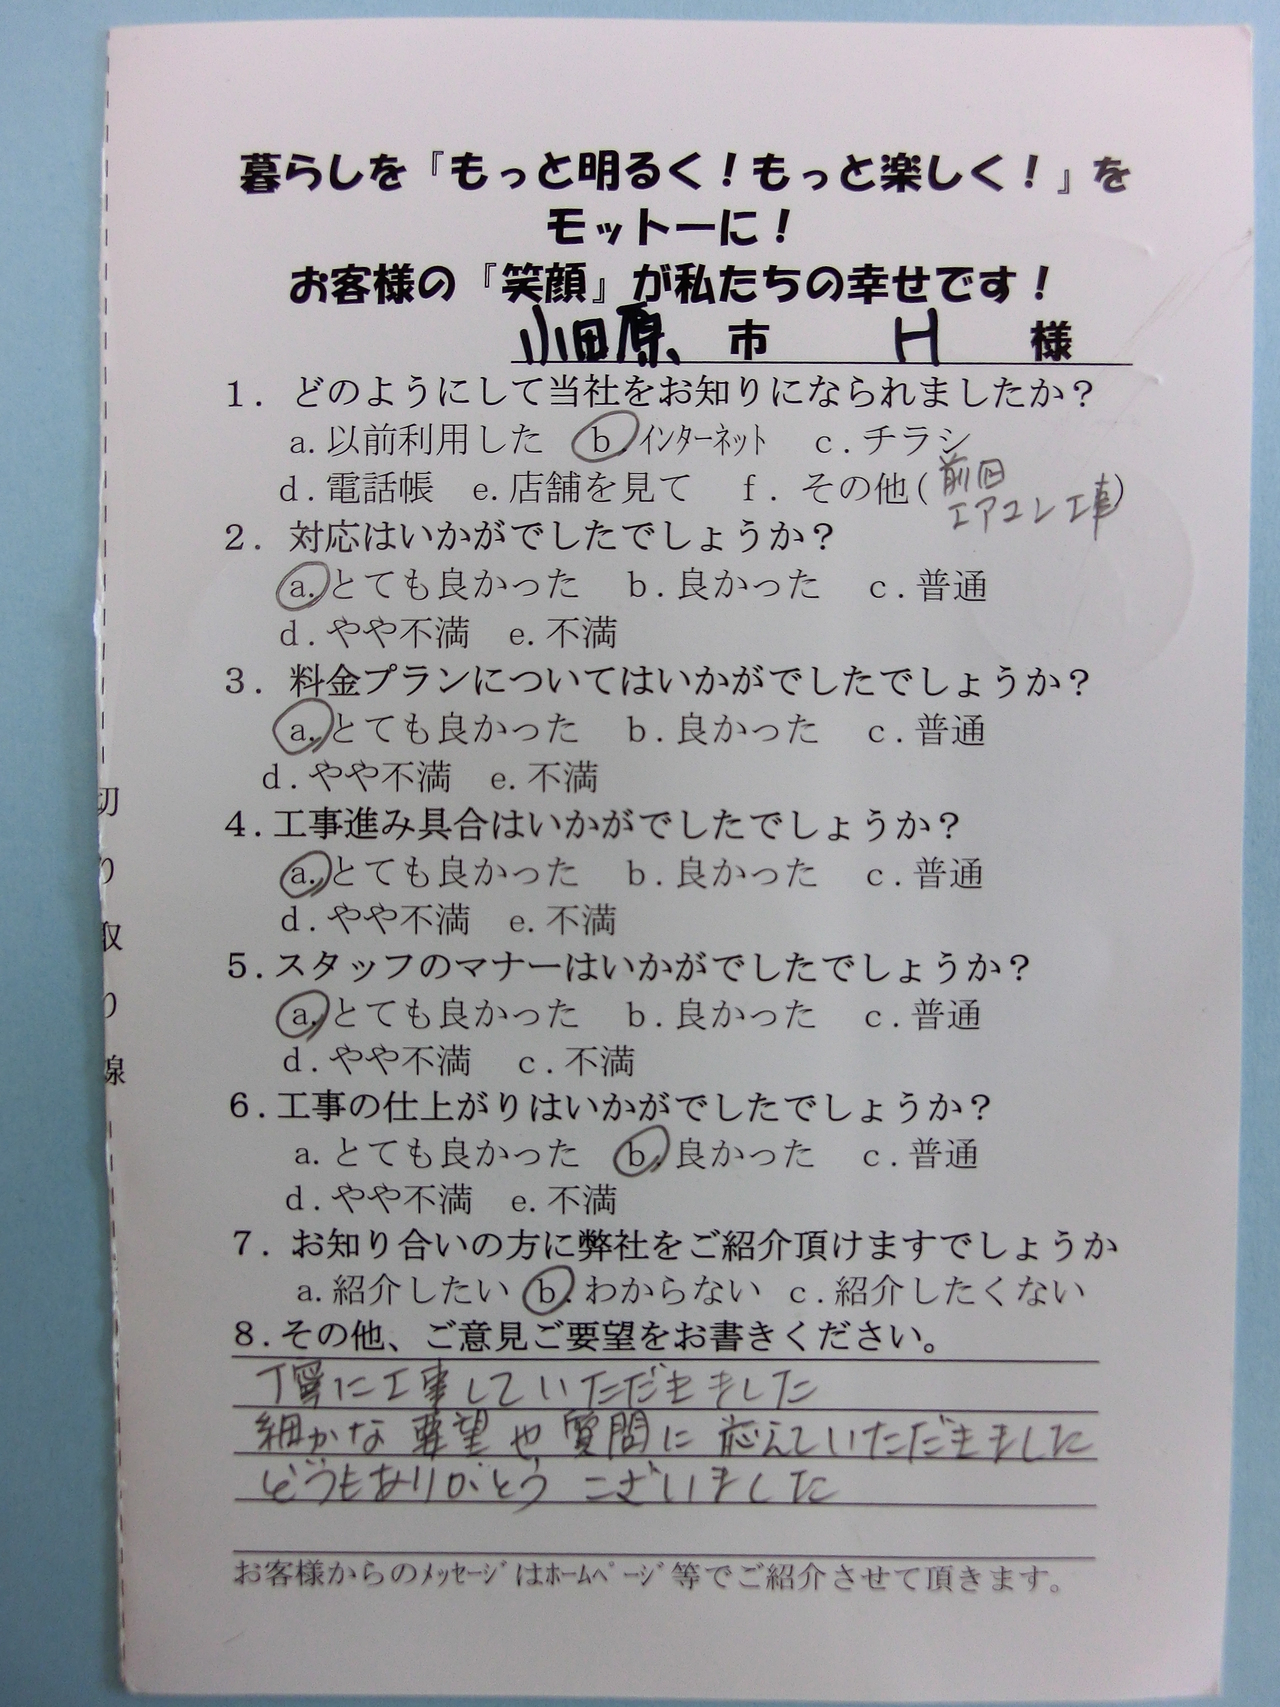 暮らしを『もっと明るく！もっと楽しく！』を
モットーに！
お客様の『笑顔』が私たちの幸せです！
小田原 市 H 様
1. どのようにして当社をお知りになられましたか？
a.以前利用した b.インターネット c.チラシ
d.電話帳 e.店舗を見て f. その他(前回
エアコン工事)
2. 対応はいかがでしたでしょうか？
a.とても良かった b.良かった c.普通
d.やや不満 e.不満
3. 料金プランについてはいかがでしたでしょうか？
a.とても良かった b.良かった c.普通
d.やや不満 e.不満
4.工事進み具合はいかがでしたでしょうか？
a.とても良かった b.良かった c.普通
d.やや不満 e.不満
5.スタッフのマナーはいかがでしたでしょうか？
a.とても良かった b.良かった c.普通
d.やや不満 c.不満
6.工事の仕上がりはいかがでしたでしょうか？
a.とても良かった b.良かった c.普通
d.やや不満 e.不満
7. お知り合いの方に弊社をご紹介頂けますでしょうか
a.紹介したい b.わからない c.紹介したくない
8.その他、ご意見ご要望をお書きください。
丁寧に工事していただきました
細かな要望や質問に応えていただきました
どうもありがとうございました
お客様からのﾒｯｾｰｼﾞはﾎｰﾑﾍﾟｰｼﾞ等でご紹介させて頂きます。
切り取り線